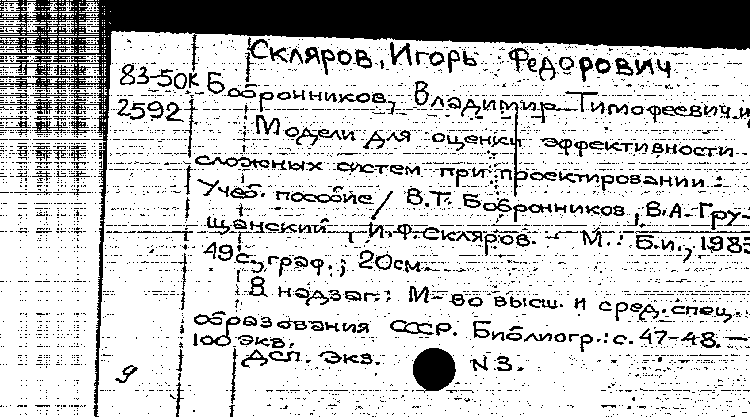 Скляров, Игорь Федорович
83-50К Бобронников, Владимир Тимофеевич и
2592
Модели для оценки эффективности
сложных систем при проектировании:
Учеб. пособие / В.Т. Бобронников, В.А. Гру-
щанский, И.Ф. Скляров. - М.: Б.и., 1983
49с., граф.; 20см.
В надзаг.: М-во высш. и сред. спец.
образования СССР. Библиогр.: с. 47-48. —
100 экз.
Деп. экз. N3.
9